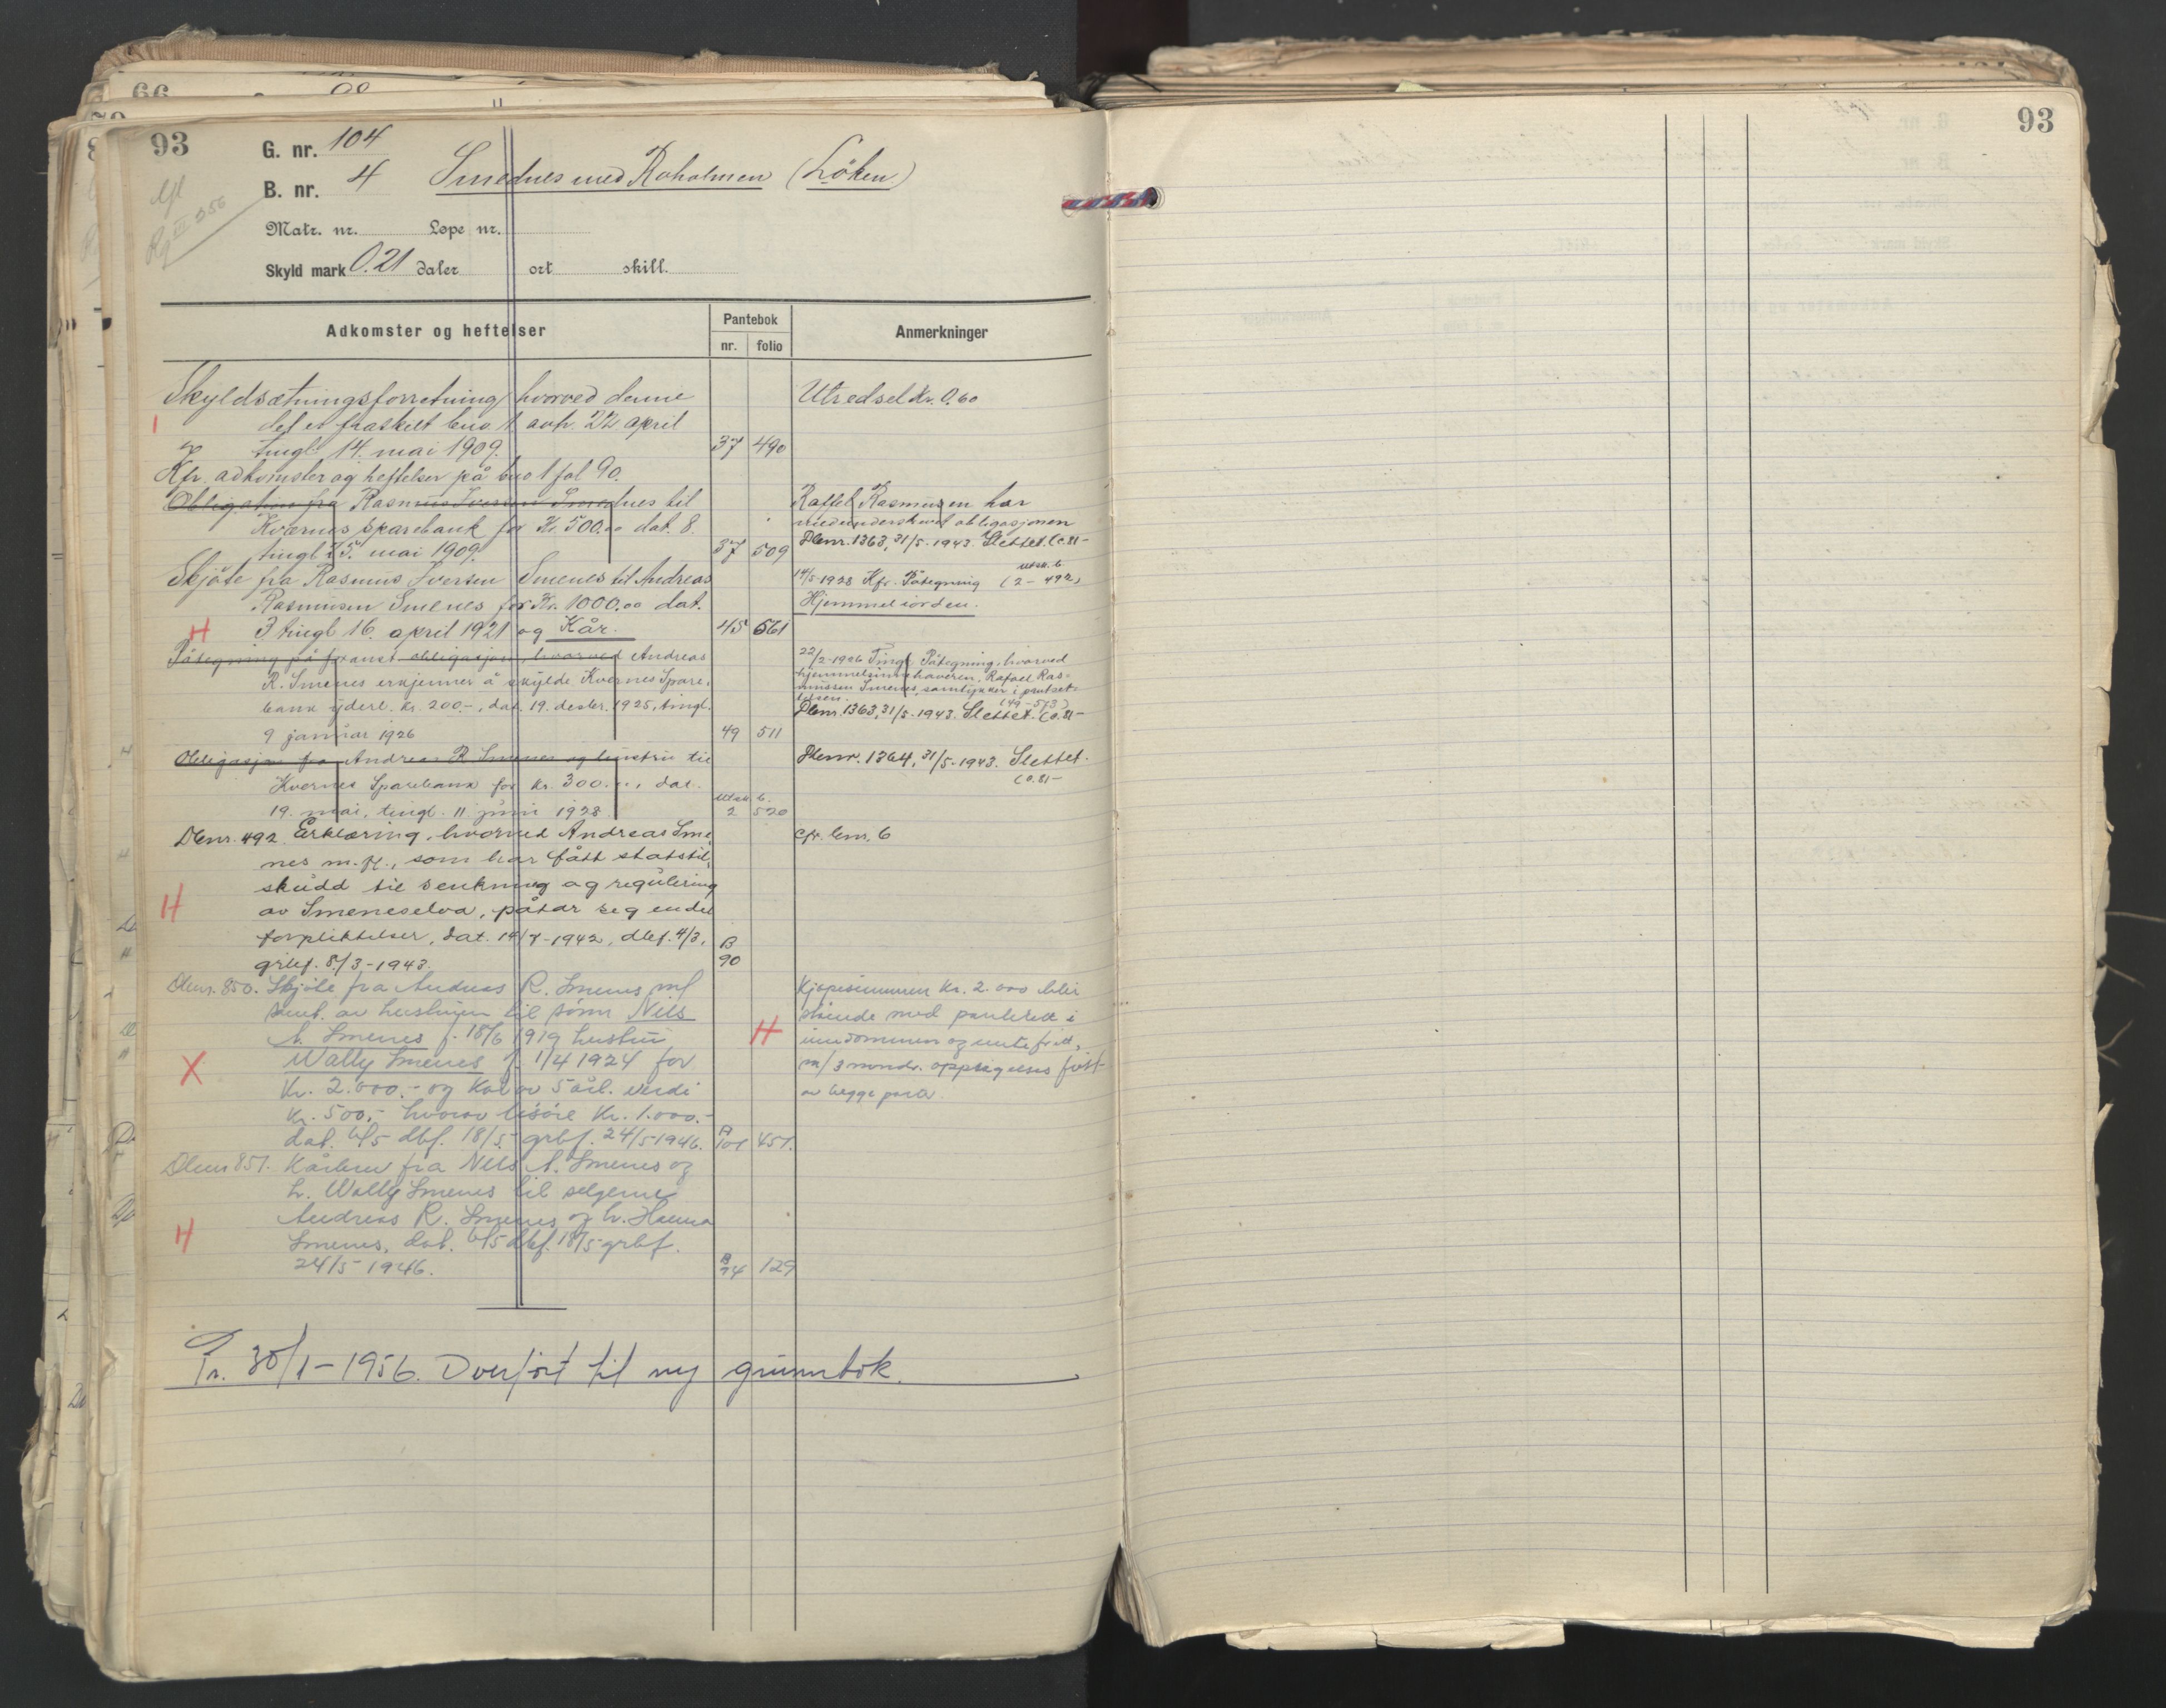 93
G. nr. 104
B. nr. 4 Smednes med Roholmen (Löken)
Matr. nr. Løpe nr.
Skyld mark 0.21 daler ort skill.
Adkomster og heftelser Pantebok Anmerkninger
nr. folio
Skyldsætningsforretning hvorved denne Utredsel Kr. 0.60
del er fraskilt bno 1. avh. 22 april
tingl. 14. mai 1909. 37 490
Kfr. adkomster og heftelser på bno 1 fol 90.
Obligation fra Rasmus Iversen Smednes til
Kværnes sparebank for Kr 500.00 dat. 8.
tingl 15. mai 1909. 37 509
Raffel Rasmusen har
medunderskrevet obligasjonen
Dbnr. 1363, 31/5-1943. Slettet. C.81-
Skjöte fra Rasmus Iversen Smenes til Andreas
Rasmusen Smenes for Kr. 1000.00 dat.
H 3 tingl 16. april 1921 og Kår. 45 661
14/5 1928 Kfr. Påtegning (2-492)
Hjemmel iorden.
Påtegning på foranst. obligasjon, hvorved Andreas
R. Smenes erkjenner å skylde Kvernes Spare-
bank yderl. kr. 200.-, dat. 19. desbr. 1925, tingl.
9 januar 1926 49 511
22/2-1926 Tingl. Påtegning, hvorved
hjemmelsinnehaveren, Rafael Ras-
mussen Smenes, samtykker i pantset-
telsen. (49-573)
Dbnr. 1363, 31/5-1943. Slettet. C.81-
Obligasjon fra Andreas R. Smenes og hustru til
Kvernes Sparebank for kr. 300.-, dat.
19. mai, tingl. 11 juni 1928. 2 520
Dbnr. 1364, 31/5-1943. Slettet.
C.81-
Dbnr. 492. Erklæring, hvorved Andreas Sme- cfr. bnr. 6
nes m.fl., som har fått statstil-
skudd til senkning og regulering
H av Smeneselva, påtar seg endel
forpliktelser, dat. 14/7-1942, dbf. 4/3, B
grbf. 8/3-1943. 90
Dbnr. 850. Skjöte fra Andreas R. Smenes m/
samt. av hustruen til sönn Nils
A. Smenes f. 18/6 1919 hustru
X Wally Smenes f. 1/4 1924 for
Kr. 2.000.- og Kår av 5 årl. verdi
kr. 500,- hvorav lösöre kr. 1.000.-
dat. 4/5 dbf. 18/5 grbf. 24/5-1946. A 101 451.
Kjøpesummen kr. 2.000 blir
stående med panterett i
H eiendommen og rentefritt,
m/3 mndr. oppsigelses frist
av begge parter
Dbnr 851. Kårbrev fra Nils A. Smenes og
h. Wally Smenes til selgerne
Andreas R. Smenes og h. Hanna
H Smenes, dat. 4/5 dbf. 18/5 grbf.
24/5-1946. B 94 129
Pr. 30/1-1956. Overfört til ny grunnbok.
93